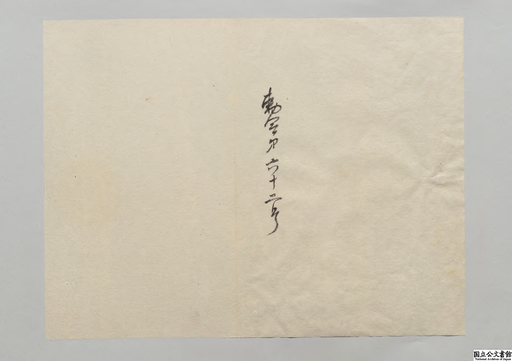 勅令第六十二号
国立公文書館
National Archives of Japan